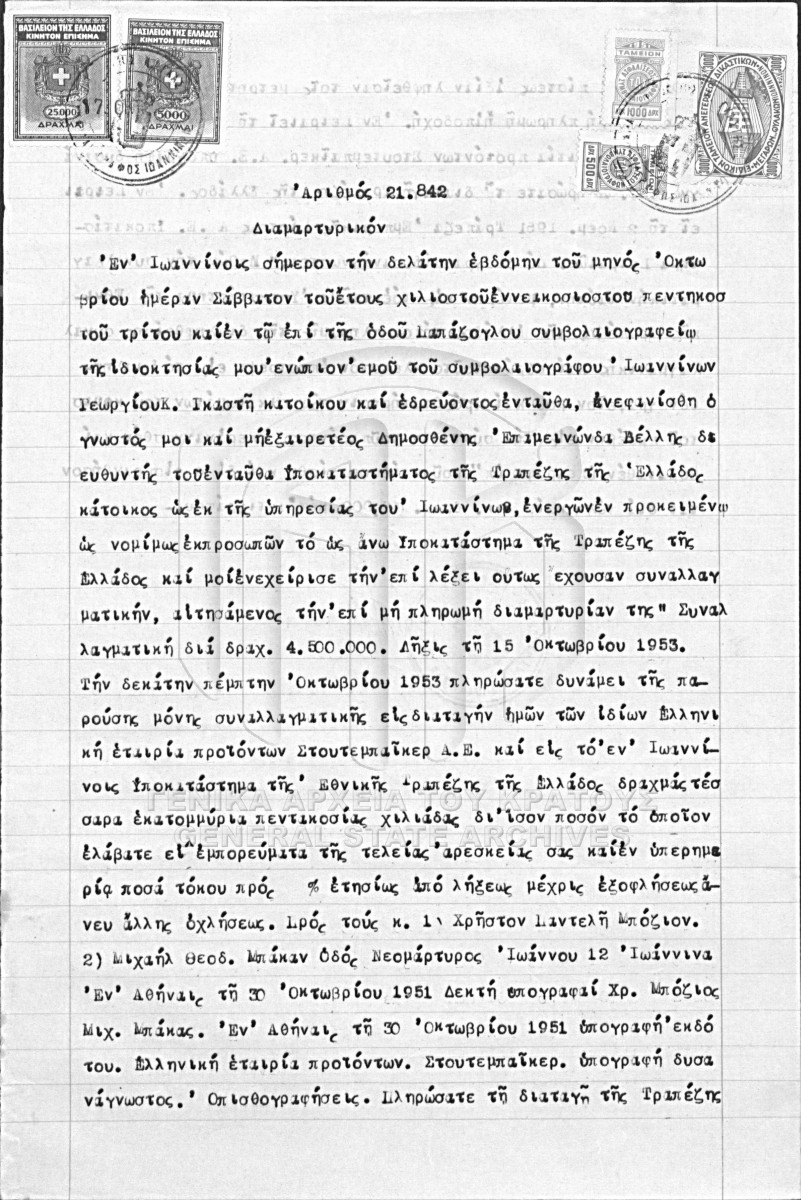 ΒΑΣΙΛΕΙΟΝ ΤΗΣ ΕΛΛΑΔΟΣ
ΚΙΝΗΤΟΝ ΕΠΙΣΗΜΑ
25000
ΔΡΑΧΜΑΙ
ΒΑΣΙΛΕΙΟΝ ΤΗΣ ΕΛΛΑΔΟΣ
ΚΙΝΗΤΟΝ ΕΠΙΣΗΜΑ
5000
ΔΡΑΧΜΑΙ
ΤΑΜΕΙΟΝ
1000 ΔΡΧ
ΔΡ. 500 ΔΡΧ
Ἀριθμός 21.842
Διαμαρτυρικόν
Ἐν Ἰωαννίνοις σήμερον τήν δεκάτην ἑβδόμην τοῦ μηνός Ὀκτω
βρίου ἡμέραν Σάββατον τοῦἔτους χιλιοστοῦἐννεακοσιοστοῦ πεντηκοσ
τοῦ τρίτου καίἐν τῷ ἐπί τῆς ὁδοῦ Λαπάζογλου συμβολαιογραφείῳ
τῆς ἰδιοκτησίας μου ἐνώπιον ἐμοῦ τοῦ συμβολαιογράφου Ἰωαννίνων
ΓεωργίουΚ. Γκαστῆ κατοίκου καί ἑδρεύοντοςἐνταῦθα, ἐνεφανίσθη ὁ
γνωστός μοι καί μήἐξαιρετέος Δημοσθένης Ἐπαμεινώνδα Βέλλης δι
ευθυντής τοῦἐνταῦθα Ὑποκαταστήματος τῆς Τραπέζης τῆς Ἑλλάδος
κάτοικος ὡςἐκ τῆς ὑπηρεσίας του Ἰωαννίνων, ἐνεργῶνἐν προκειμένῳ
ὡς νομίμωςἐκπροσωπῶν τό ὡς ἄνω Ὑποκατάστημα τῆς Τραπέζης τῆς
Ἑλλάδος καί μοίἐνεχείρισε τήν ἐπί λέξει οὕτως ἔχουσαν συναλλαγ
ματικήν, αἰτησάμενος τήν ἐπί μή πληρωμῇ διαμαρτυρίαν της " Συναλ
λαγματική διά δραχ. 4.500.000. Λῆξις τῇ 15 Ὀκτωβρίου 1953.
Τήν δεκάτην πέμπτην Ὀκτωβρίου 1953 πληρώσατε δυνάμει τῆς πα-
ρούσης μόνης συναλλαγματικῆς εἰςδιαταγήν ἡμῶν τῶν ἰδίων Ἑλληνι
κή ἑταιρία προϊόντων Στουτεμπαῖκερ Α.Ε. καί εἰς τό ἐν Ἰωαννί-
νοις Ὑποκατάστημα τῆς Ἐθνικῆς Τραπέζης τῆς Ἑλλάδος δραχμάς τέσ
σαρα ἑκατομμύρια πεντακοσίας χιλιάδας δι ἴσον ποσόν τό ὁποῖον
ἐλάβατε εἰς ἐμπορεύματα τῆς τελείας ἀρεσκείας σας καίἐν ὑπερημε
ρίᾳ ποσά τόκου πρός % ἐτησίως ἀπό λήξεως μέχρις ἐξοφλήσεωςἄ-
νευ ἄλλης ὀχλήσεως. Πρός τούς κ. 1) Χρῆστον Παντελῆ Μπόζιον.
2) Μιχαήλ Θεοδ. Μπάκαν Ὁδός Νεομάρτυρος Ἰωάννου 12 Ἰωάννινα
Ἐν Ἀθήναις τῇ 30 Ὀκτωβρίου 1951 Δεκτή ὑπογραφαί Χρ. Μπόζιος
Μιχ. Μπάκας. Ἐν Ἀθήναις τῇ 30 Ὀκτωβρίου 1951 ὑπογραφή ἐκδό
του. Ἑλληνική ἑταιρία προϊόντων. Στουτεμπαῖκερ. ὑπογραφή δυσα
νάγνωστος. Ὀπισθογραφήσεις. Πληρώσατε τῇ διαταγῇ τῆς Τραπέζης
ΓΕΝΙΚΑ ΑΡΧΕΙΑ ΤΟΥ ΚΡΑΤΟΥΣ
GENERAL STATE ARCHIVES